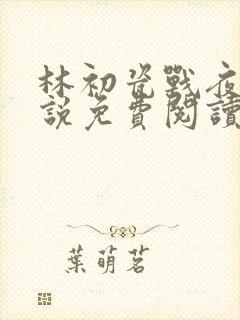 林初瓷戰夜
說免費閱讀
葉萌茗